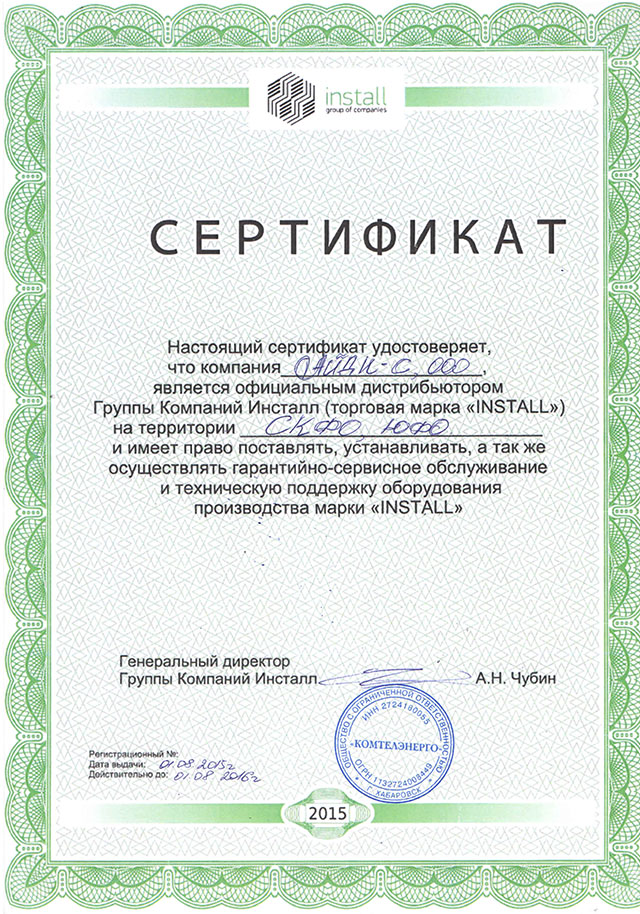 install
group of companies
СЕРТИФИКАТ
Настоящий сертификат удостоверяет,
что компания ОАЙДИ-С, ООО,
является официальным дистрибьютором
Группы Компаний Инсталл (торговая марка «INSTALL»)
на территории СКФО, ЮФО
и имеет право поставлять, устанавливать, а так же
осуществлять гарантийно-сервисное обслуживание
и техническую поддержку оборудования
производства марки «INSTALL»
Генеральный директор
Группы Компаний Инсталл А.Н. Чубин
ОБЩЕСТВО С ОГРАНИЧЕННОЙ ОТВЕТСТВЕННОСТЬЮ
ИНН 2724180055
«КОМТЕЛЭНЕРГО»
ОГРН 1132724008449
Г. ХАБАРОВСК
Регистрационный №:
Дата выдачи: 01.08 2015г
Действительно до: 01.08 2016г
2015